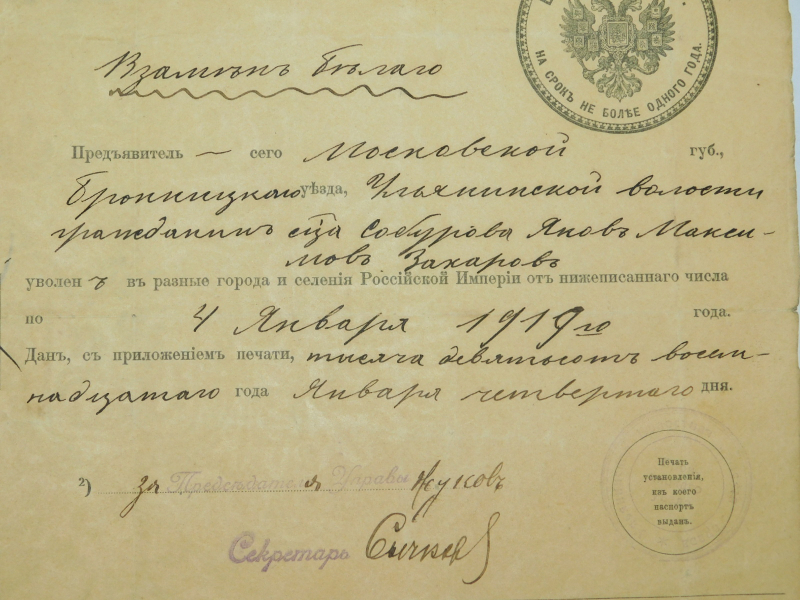 НА СРОКЪ НЕ БОЛѢЕ ОДНОГО ГОДА.
Взамѣнъ бѣлаго
Предъявитель — сего Московской губ.,
Бронницкаго уѣзда, Ульянинской волости
гражданинъ с-ца Собурова Яковъ Макси-
мовъ Захаровъ
уволен ъ въ разные города и селенія Россійской Имперіи отъ нижеписаннаго числа
по 4 Января 1919 го года.
Данъ, съ приложеніемъ печати, тысяча девятьсотъ восем-
надцатаго года Января четвертаго дня.
²) за Предсѣдателя Управы Жуковъ
Секретарь
Печать
установленія,
изъ коего
паспортъ
выданъ.